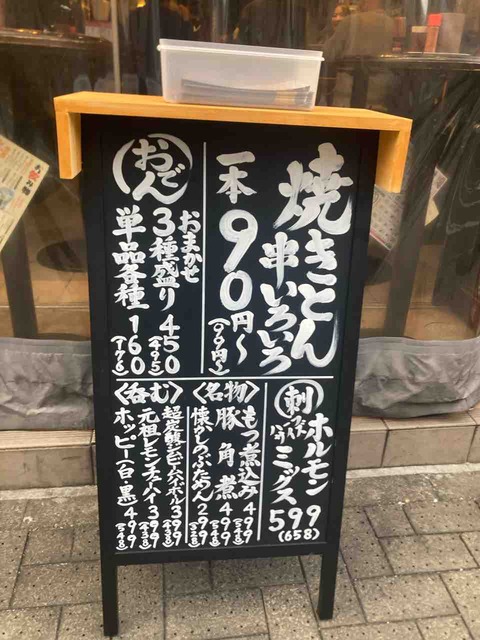 焼きとん
串いろいろ
一本
90円〜
(99円〜)
おでん
おまかせ
3種盛り 450
(495)
単品各種 160
(176)
刺
ホルモン
ミックス
599
(658)
〈名物〉
もつ煮込み 499
(548)
豚角煮 499
(548)
懐かしのぶためん 299
(328)
〈呑む〉
超炭酸ジムビームハイボール 399
(438)
元祖レモンチューハイ 399
(438)
ホッピー(白・黒) 499
(548)